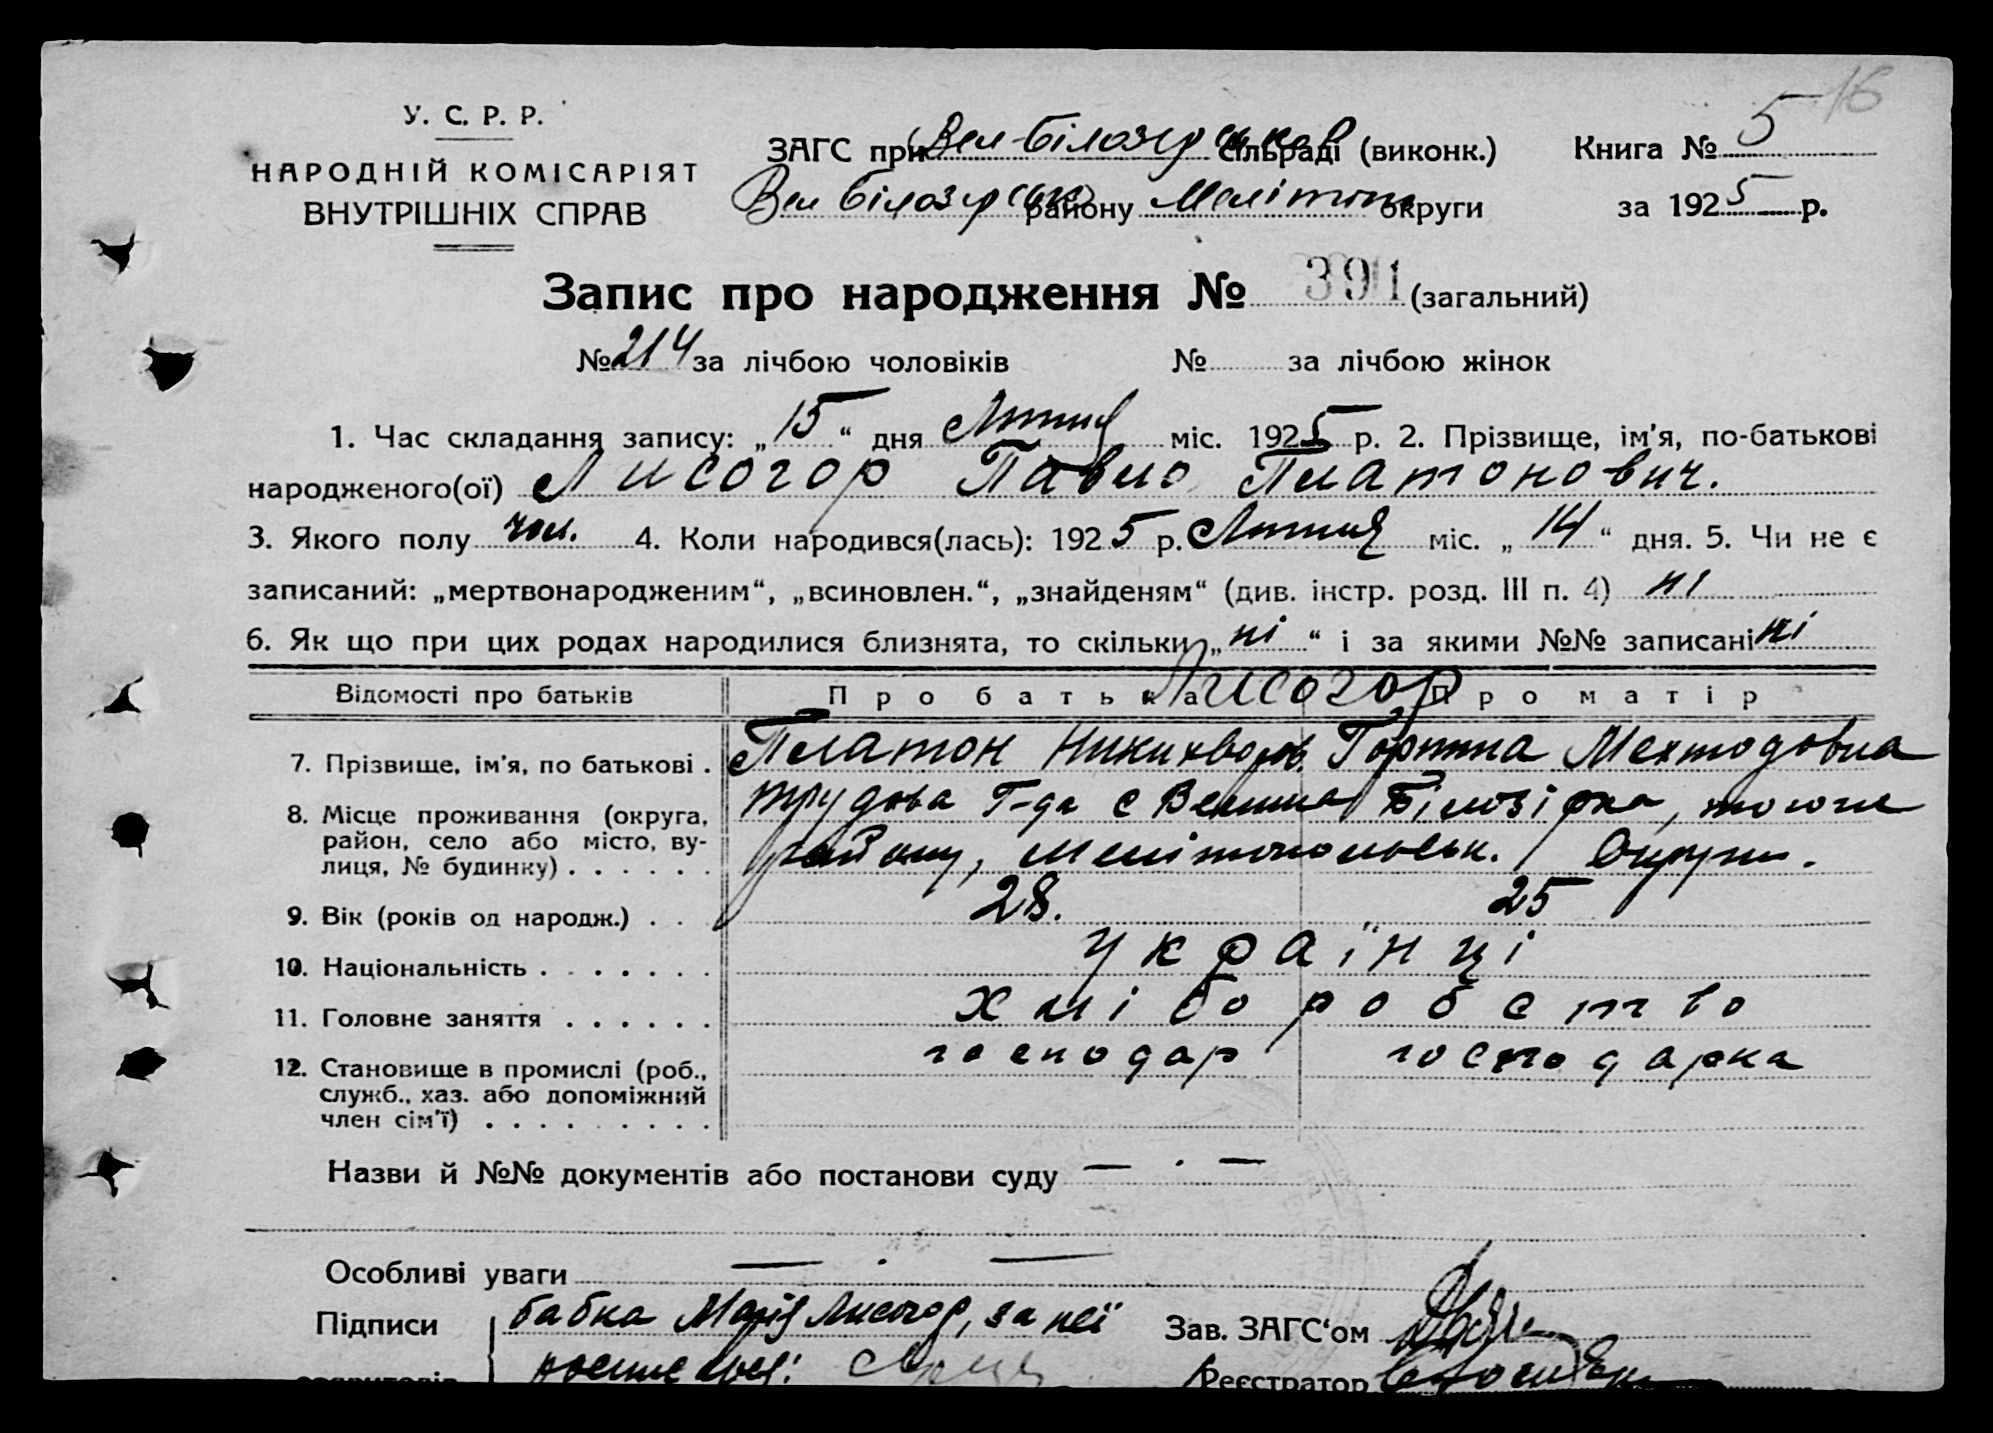 16
У. С. Р. Р.
НАРОДНІЙ КОМІСАРІЯТ
ВНУТРІШНІХ СПРАВ
ЗАГС при Вел Білозірськов сільраді (виконк.)
Книга № 5
Вел Білозірськ району Мелітоп округи
за 1925 р.
Запис про народження № 391 (загальний)
№ 214 за лічбою чоловіків № за лічбою жінок
1. Час складання запису: „15“ дня Лютия міс. 1925 р. 2. Прізвище, ім'я, по-батькові
народженого(ої) Лисогор Павло Платонович.
3. Якого полу чол. 4. Коли народився(лась): 1925 р. Лютия міс. „14“ дня. 5. Чи не є
записаний: „мертвонародженим“, „всиновлен.“, „знайденям“ (див. інстр. розд. III п. 4) ні
6. Як що при цих родах народилися близнята, то скільки „ні“ і за якими №№ записані ні
Відомості про батьків Про батька Про матір
Лисогор
7. Прізвище, ім'я, по батькові . Платон Никихворов. Горпина Мехтодовна
8. Місце проживання (округа, район, село або місто, вулиця, № будинку) . . . . . .
трудова Г-да с Велика Білозірка, того ж
району, Мелітопольськ. Округи.
9. Вік (років од народж.) . . . 28. 25
10. Національність . . . . . . . українці
11. Головне заняття . . . . . . хліборобство
12. Становище в промислі (роб., служб., хаз. або допоміжний член сім'ї) . . . . . . . . .
господар господарка
Назви й №№ документів або постанови суду — . —
Особливі уваги — . —
Підписи бабка Марія Лисогор, за неї
Зав. ЗАГС'ом
Реєстратор